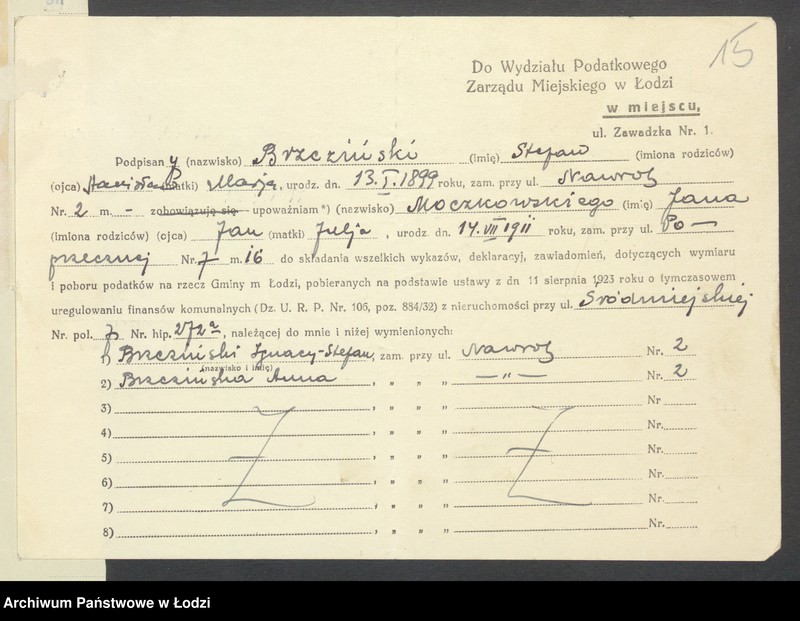 15
Do Wydziału Podatkowego
Zarządu Miejskiego w Łodzi
w miejscu,
ul. Zawadzka Nr. 1.
Podpisany (nazwisko) Brzeziński (imię) Stefan (imiona rodziców)
(ojca) Stanisław (matki) Marja, urodz. dn. 13.I.1899 roku, zam. przy ul. Nawrot
Nr. 2 m. - zobowiązuję się upoważniam *) (nazwisko) Moczkowskiego (imię) Jana
(imiona rodziców) (ojca) Jan (matki) Julja, urodz. dn. 14.VII.1911 roku, zam. przy ul. Po-
przecznej Nr. 7 m. 16 do składania wszelkich wykazów, deklaracyj, zawiadomień, dotyczących wymiaru
i poboru podatków na rzecz Gminy m Łodzi, pobieranych na podstawie ustawy z dn 11 sierpnia 1923 roku o tymczasowem
uregulowaniu finansów komunalnych (Dz. U. R. P. Nr. 106, poz. 884/32) z nieruchomości przy ul. Śródmiejskiej
Nr. pol. 7 Nr. hip. 272a, należącej do mnie i niżej wymienionych:
1) Brzeziński Ignacy-Stefan, zam. przy ul. Nawrot Nr. 2
(nazwisko i imię)
2) Brzezińska Anna, " " — " — Nr. 2
3) , " " " Nr
4) , " " " Nr.
5) , " " " Nr.
6) , " " " Nr.
7) , " " " Nr.
8) , " " " Nr.
Archiwum Państwowe w Łodzi